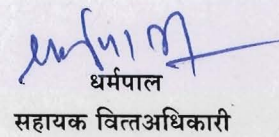 धर्मपाल
सहायक वित्तअधिकारी